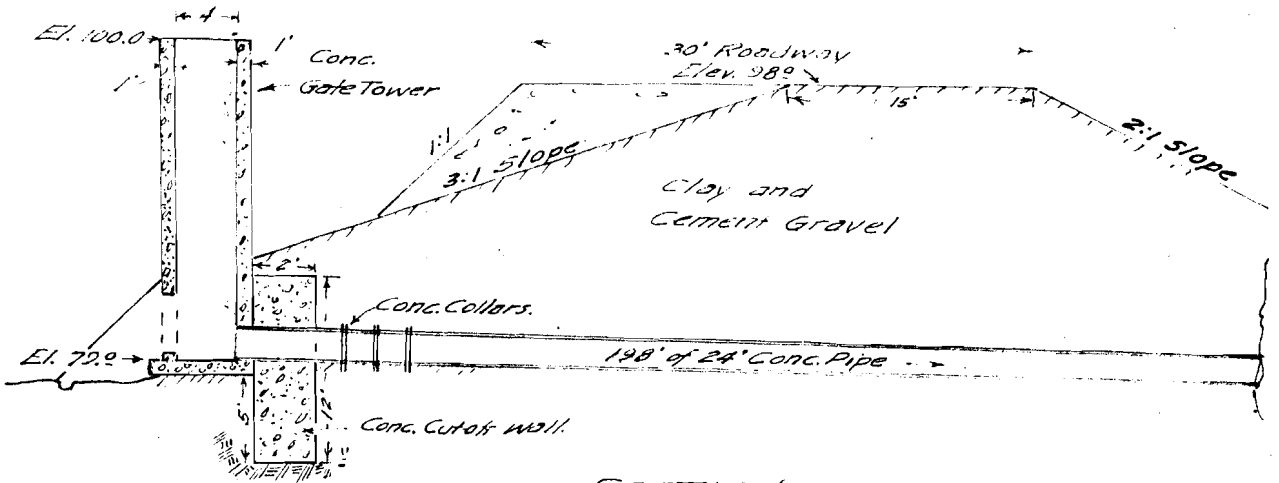 4'
El. 100.0
1'
1'
Conc.
Gate Tower
30' Roadway
Elev. 98.0
15'
1:1
3:1 Slope
2:1 Slope
Clay and
Cement Gravel
2'
Conc. Collars.
El. 79.0
198' of 24" Conc. Pipe
5'
12'
Conc. Cutoff Wall.